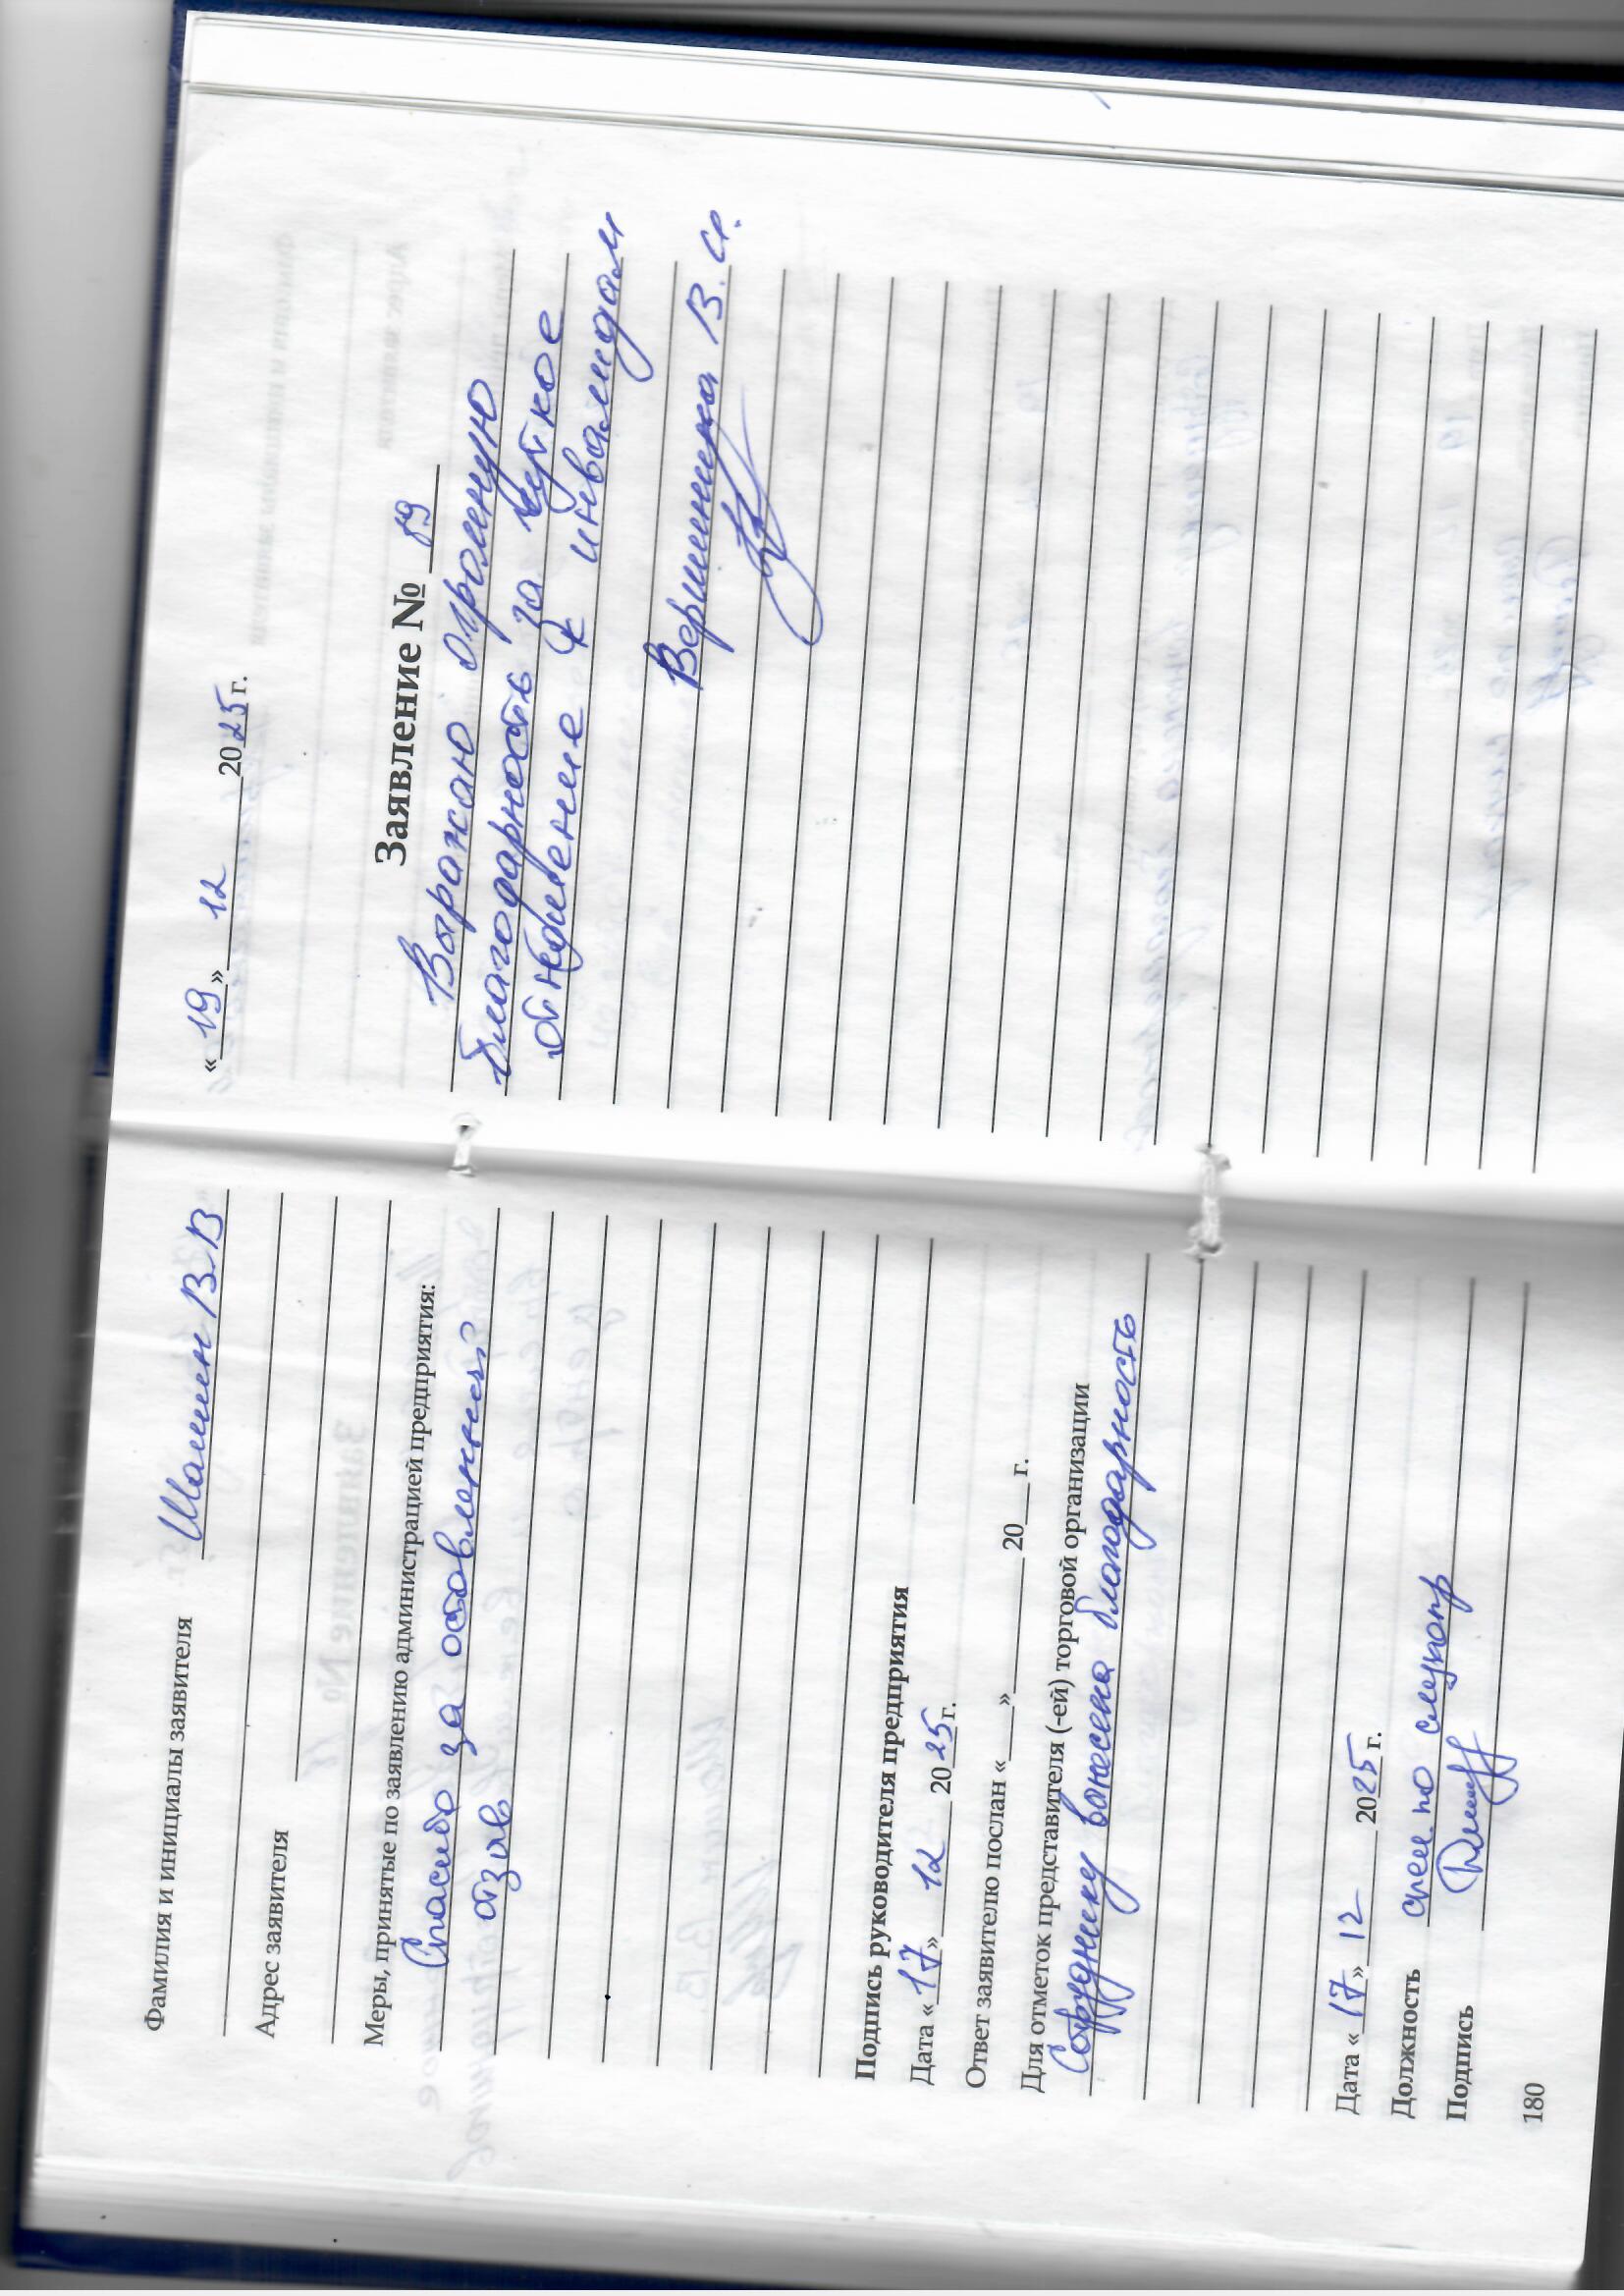 Фамилия и инициалы заявителя
Шашин В.В
Адрес заявителя
Меры, принятые по заявлению администрацией предприятия:
Спасибо за оставленный
отзыв
Подпись руководителя предприятия
Дата « 17 » 12 2025 г.
Ответ заявителю послан «___»________ 20___ г.
Для отметок представителя (-ей) торговой организации
Сотруднику вынесена благодарность
Дата « 17 » 12 2025 г.
Должность спец. по
Подпись
180
« 19 » 12 2025 г.
Заявление № 89
Выражаю огромную
благодарность за чуткое
отношение к инвалидам
Вершинина В. А.